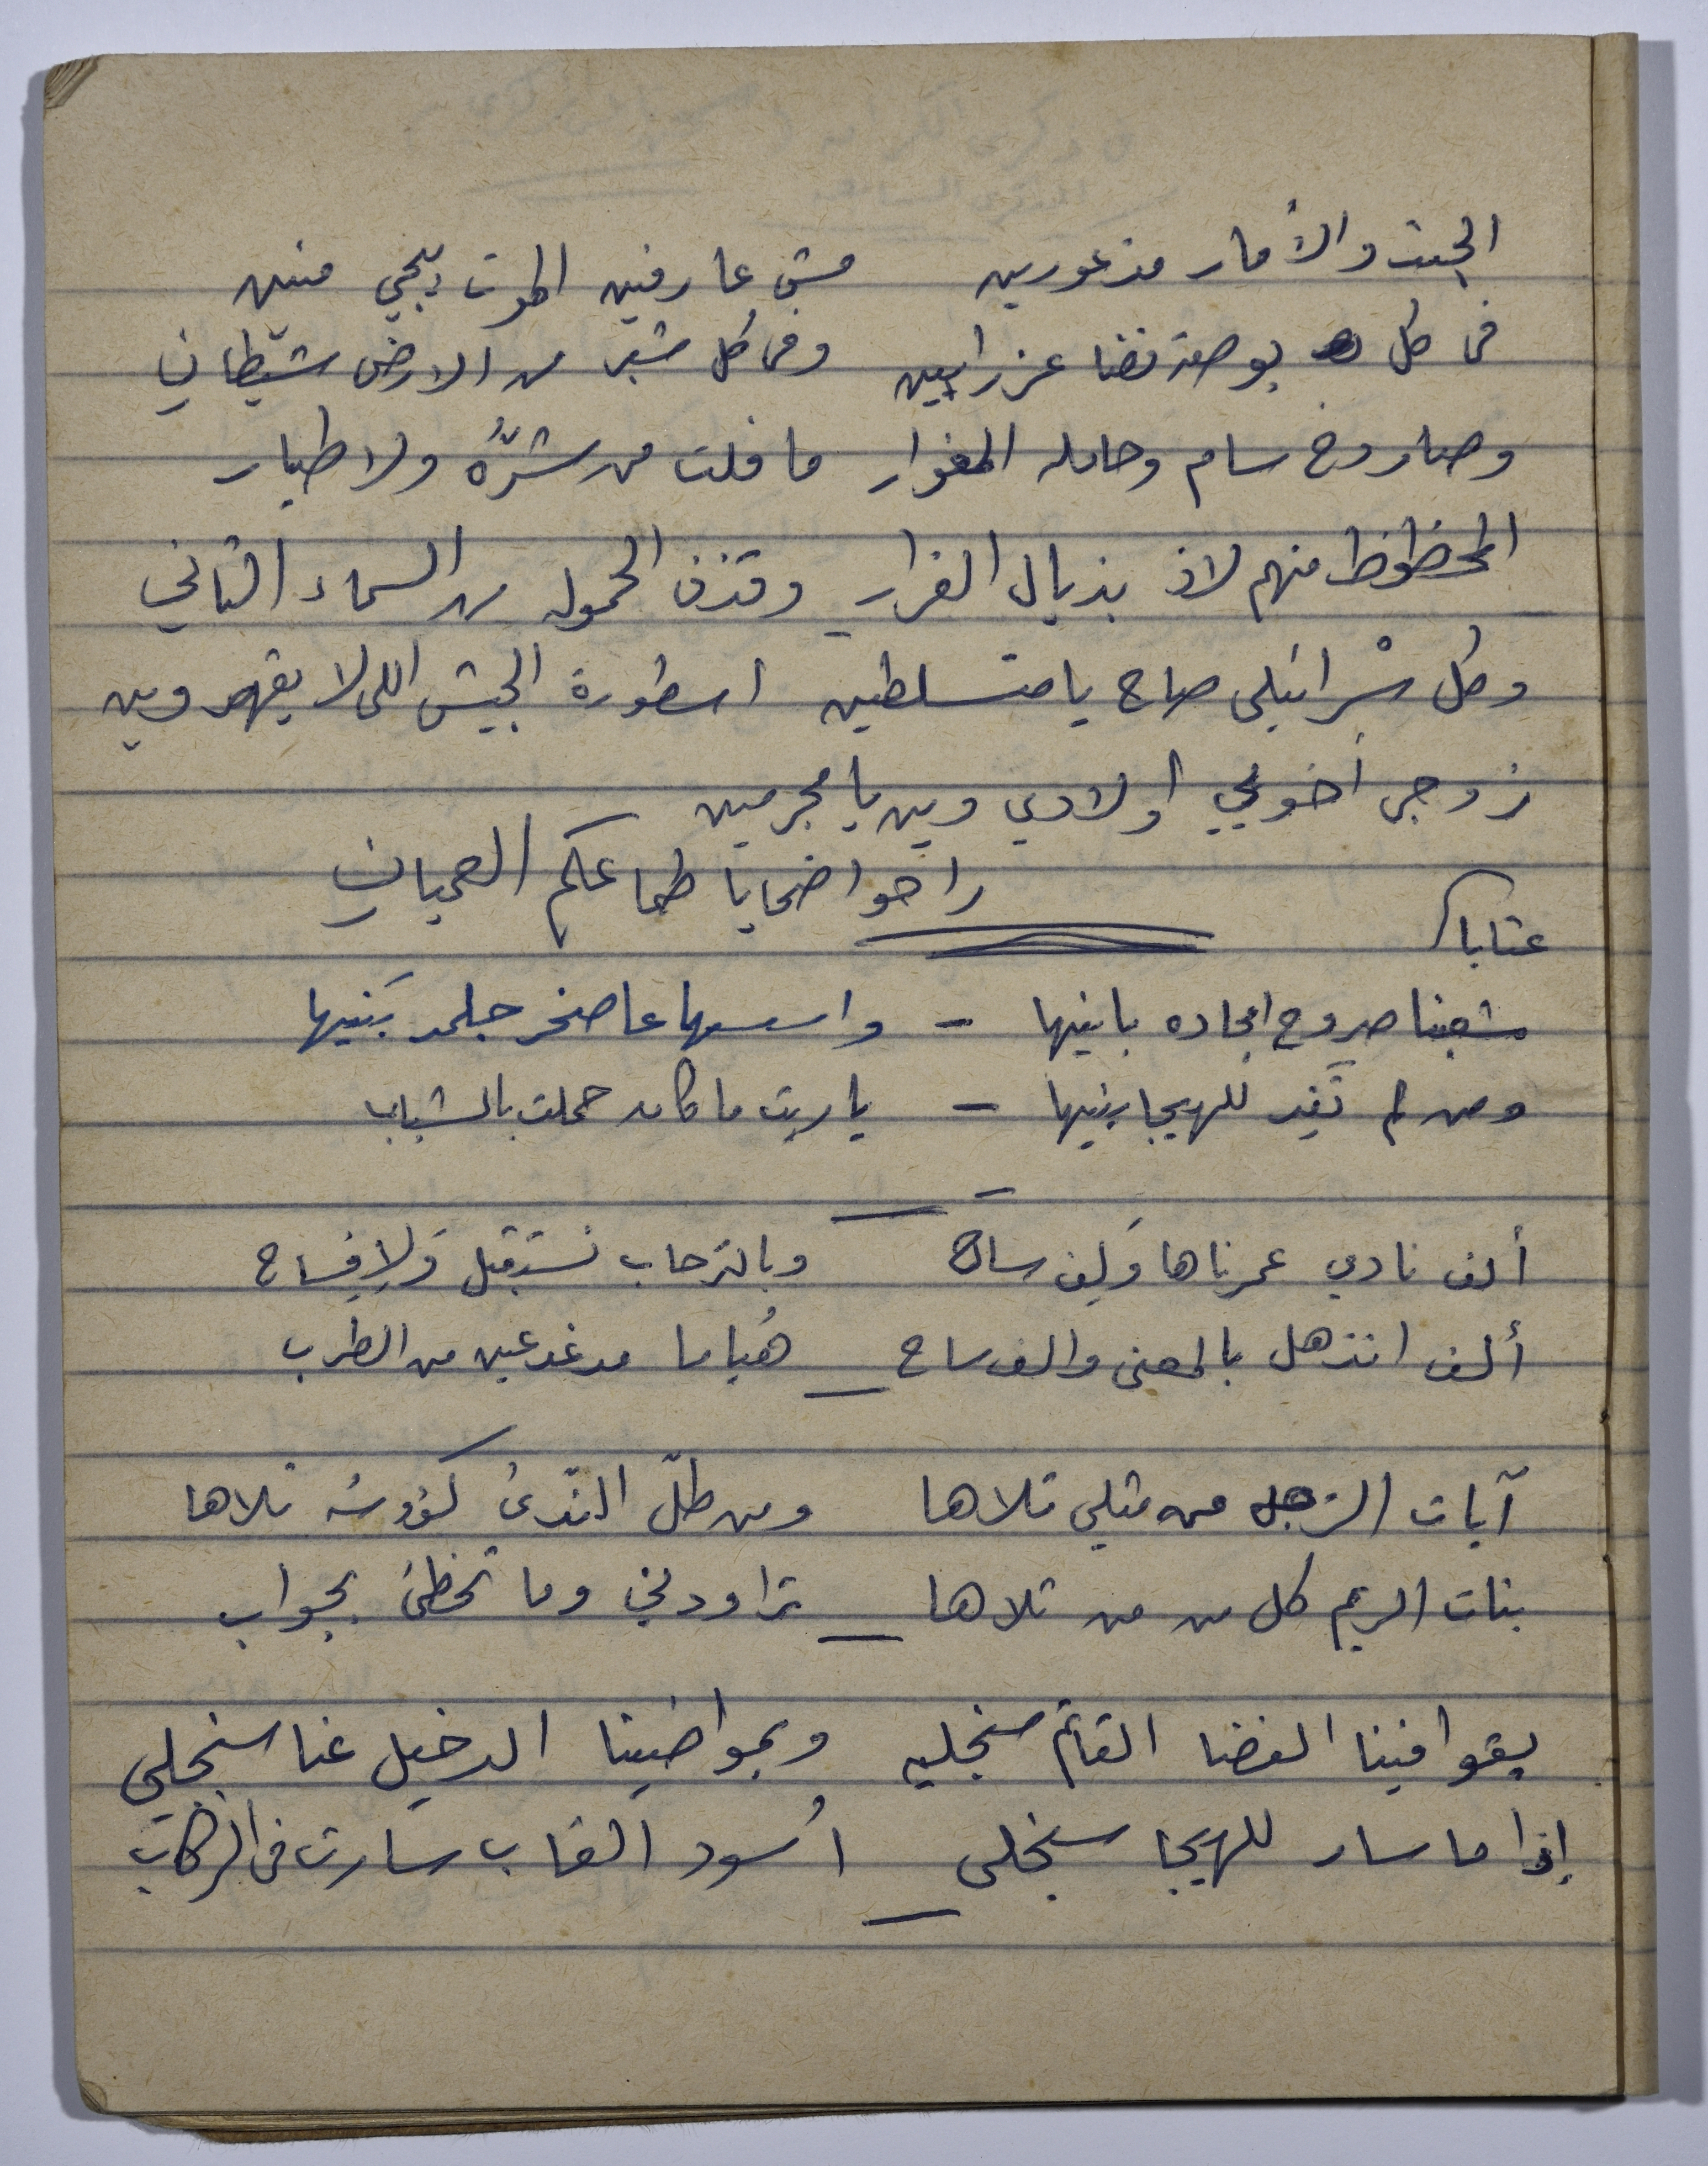 الجند والأقمار مذعورين مش عارفين الموت بيجي منين
في كل بوصة فضا عزرايين وفي كل شبر من الارض شيطاني
وصاروخ سام وحامله المغوار ما فلت من شرُّه ولا طيار
المحظوظ منهم لاذ بذيال الفرار وقذف الحموله من السماء التاني
وكل سْرائيلي صاح يا متسلطين اسطورة الجيش اللي لا يقهر وين
زوجي أخويي أولادي وين يا مجرمين
راحوا ضحايا طماعكم العميان
عتابا
شعبنا صروح امجاده بانيها - واسسها عا صخر جلمد بَنيها
ومن لم تَفِد للهيجا بنيها - يا ريت ما كان حملت بالشباب
ألف نادي عمرناها وَلِف ساح وبالترحاب نستقبل وَلافساح
ألف انذهل بالمعنى والف ساح هُياما مدغدغين من الطرب
آيات الزجل من مثلي تلاها ومن طلّ الندى كؤوسُه تلاها
بنات الريم كل من من تلاها تراودني وما تحظى بجواب
بقوافينا الفضا القاتم سنجليه وبمواضينا الدخيل عنا سنجلي
إذا ما سار للهيجا سنجلي أسود الغاب سارت في الركاب